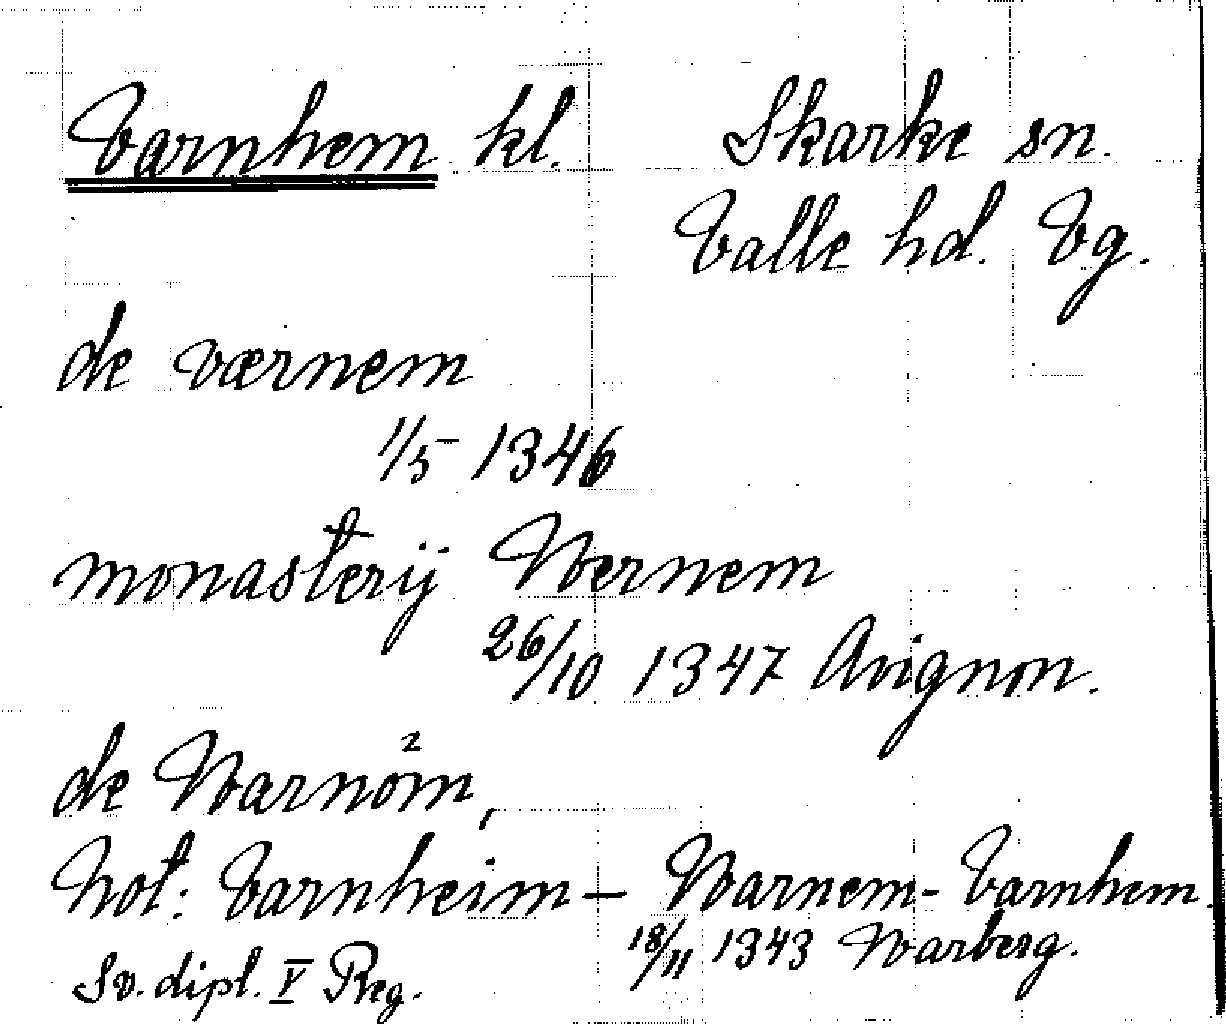 Varnhem kl. Skarke sn.
Valle hd. Vg.
de værnem
1/5 1346
monasterij Wernem
26/10 1347 Avignon.
de Warnöm,
Not: Varnheim – Warnem - Varnhem
18/11 1343 Warberg.
Sv. dipl. V Reg.